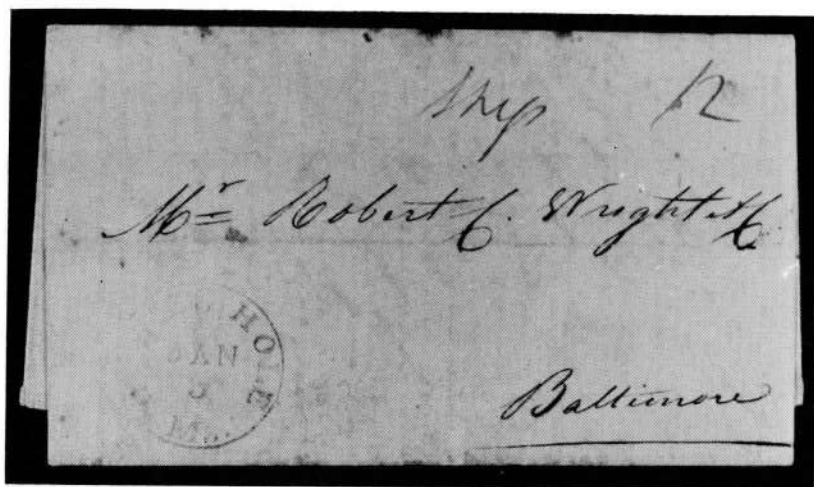 Ship 12
Mr Robert C. Wright &C
HOLE
JAN
Ms.
Baltimore